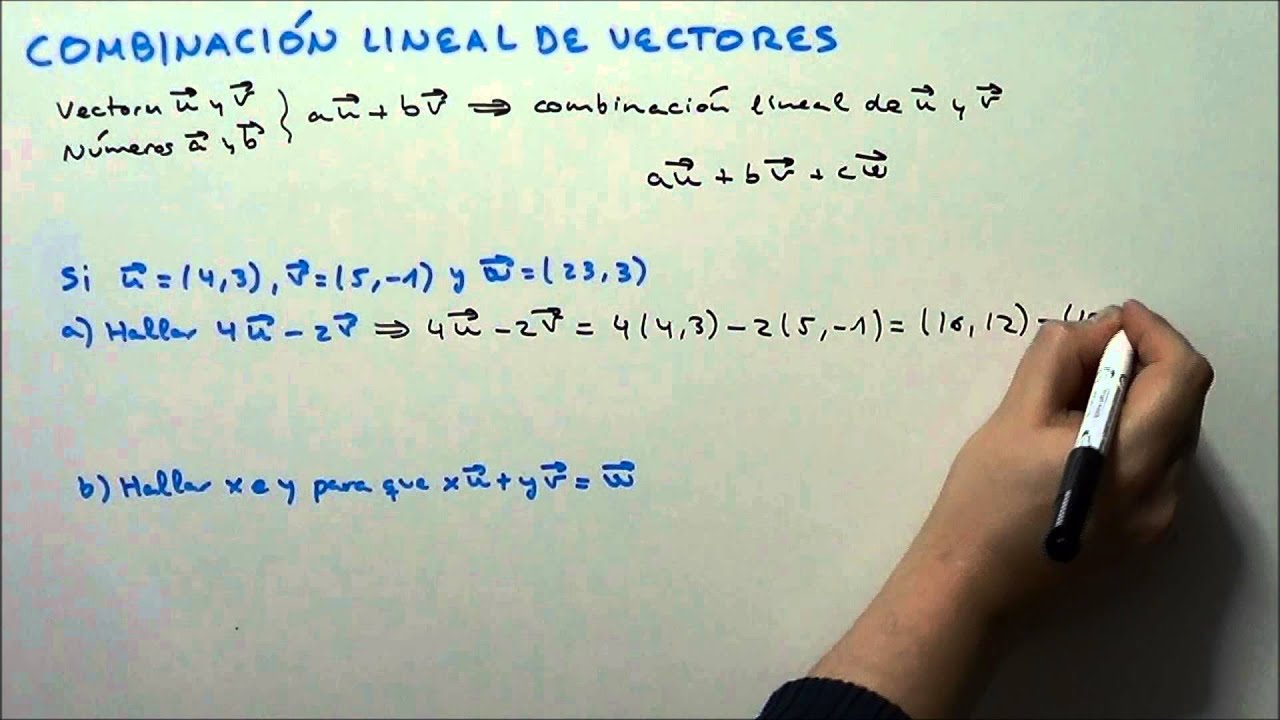 COMBINACIÓN LINEAL DE VECTORES
Vectores u⃗ y v⃗ } au⃗ + bv⃗ ⇒ combinación lineal de u⃗ y v⃗
Números a⃗ y b⃗
au⃗ + bv⃗ + cw⃗
Si u⃗ = (4,3), v⃗ = (5,-1) y w⃗ = (23,3)
a) Hallar 4u⃗ - 2v⃗ ⇒ 4u⃗ - 2v⃗ = 4(4,3) - 2(5,-1) = (16,12) - (10
b) Hallar x e y para que xu⃗ + yv⃗ = w⃗